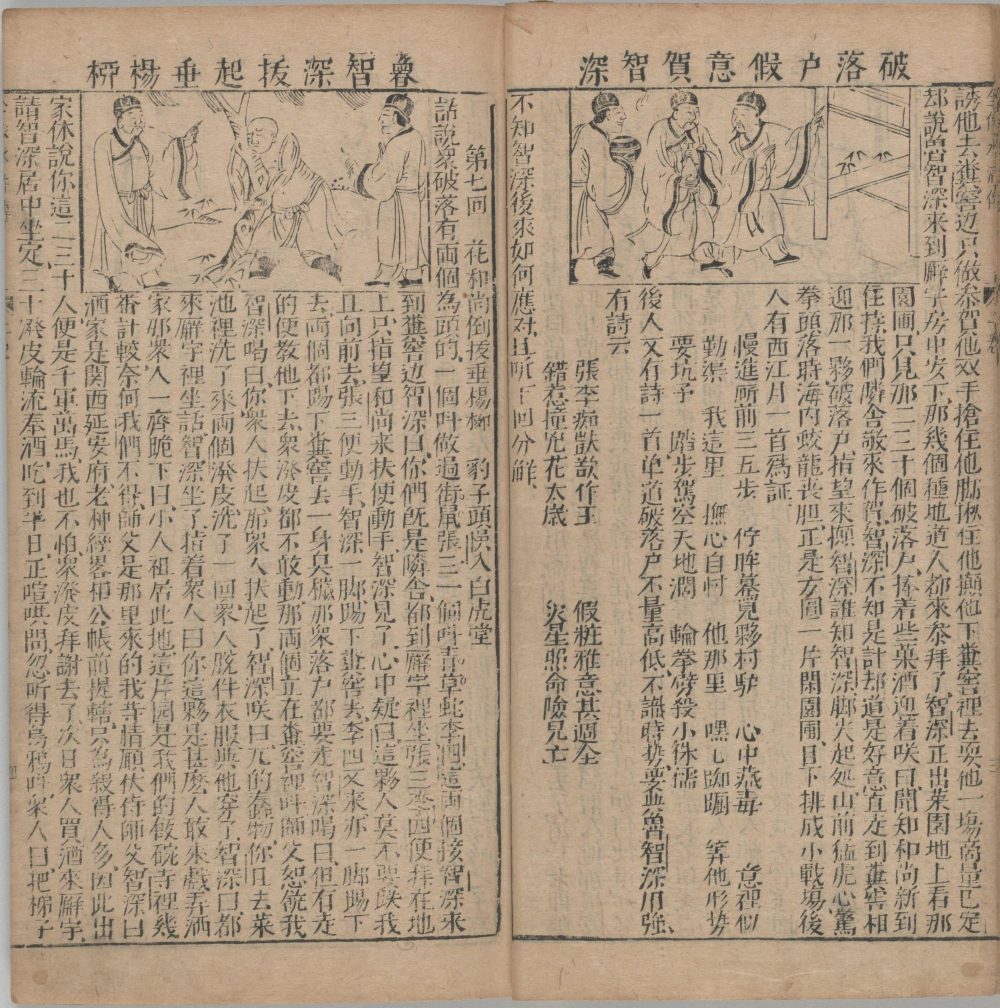 破落户假意賀智深
誘他去糞窖边只做参賀他双手搶住他脚揪住他攧他下糞窖裡去耍他一塲商量已定
却說魯智深来到廨宇房中安下那幾個種地道人都來叅拜了智深正出菜園地上看那
園圃只見那二三十個破落户捧着些菓酒迎着咲曰聞知和尚新到
住持我們隣舍敬來作賀智深不知是計却道是好意直走到糞窖相
迎那一夥破落户指望來攧智深誰知智深脚尖起処山前猛虎心驚
拳頭落時海內蛟龍丧胆正是方圓一片閑園圃目下排成小戰塲後
人有西江月一首爲証
慢進前三五步 佇眸驀見夥村馿 心中蒸毒 意裡似
勤渠 我這里 撫心自忖 他那里 嘿七踟蹰 筭他形势
要坑予 踏步駕空天地濶 輪拳劈殺小侏儒
後人又有詩一首单道破落户不量高低不識時势要与魯智深用強
有詩云
張李痴獃欲作主 假粧雅意甚週全
錯惹撞兇花太歲 災生㷠命險見亡
不知智深後來如何應对且听下回分解
魯智深拔起垂楊柳
第七回 花和尚倒拔垂楊柳 豹子頭悞入白虎堂
話說衆破落有両個為頭的一個叫做過街鼠張三一個叫青草蛇李四這両個接智深來
到糞窖边智深曰你們既是隣舍都到廨宇裡坐張三李四便拜在地
上只指望和尚来扶便動手智深見了心中疑曰這夥人莫不要跌我
且向前去張三便動手智深一脚踢下糞窖去李四又来亦一脚踢下
去両個都踢下糞窖去一身臭穢那衆落户都要走智深喝曰但有走
的便教他下去衆潑皮都不敢動那両個立在糞窖裡叫師父恕饒我
智深喝曰你衆人扶起那衆人扶起了智深咲曰兀的蠢物你且去菜
池裡洗了來両個潑皮洗了一囬衆人脫件衣服與他穿了智深曰都
來廨宇裡坐話智深坐了指着衆人曰你這夥是甚麽人敢來戲弄洒
家那衆人一齊跪下曰小人祖居此地這片園是我們的飯碗寺裡幾
番計較奈何我們不得師父是那里來的我等情願伏侍師父智深曰
洒家是関西延安府老种經畧相公帳前提轄只為殺得人多因此出
家休說你這二三十人便是千軍萬馬我也不怕衆潑皮拜謝去了次日衆人買酒來廨宇
請智深居中坐定三十潑皮輪流奉酒吃到半日正喧哄間忽听得烏鴉呌衆人曰把梯子